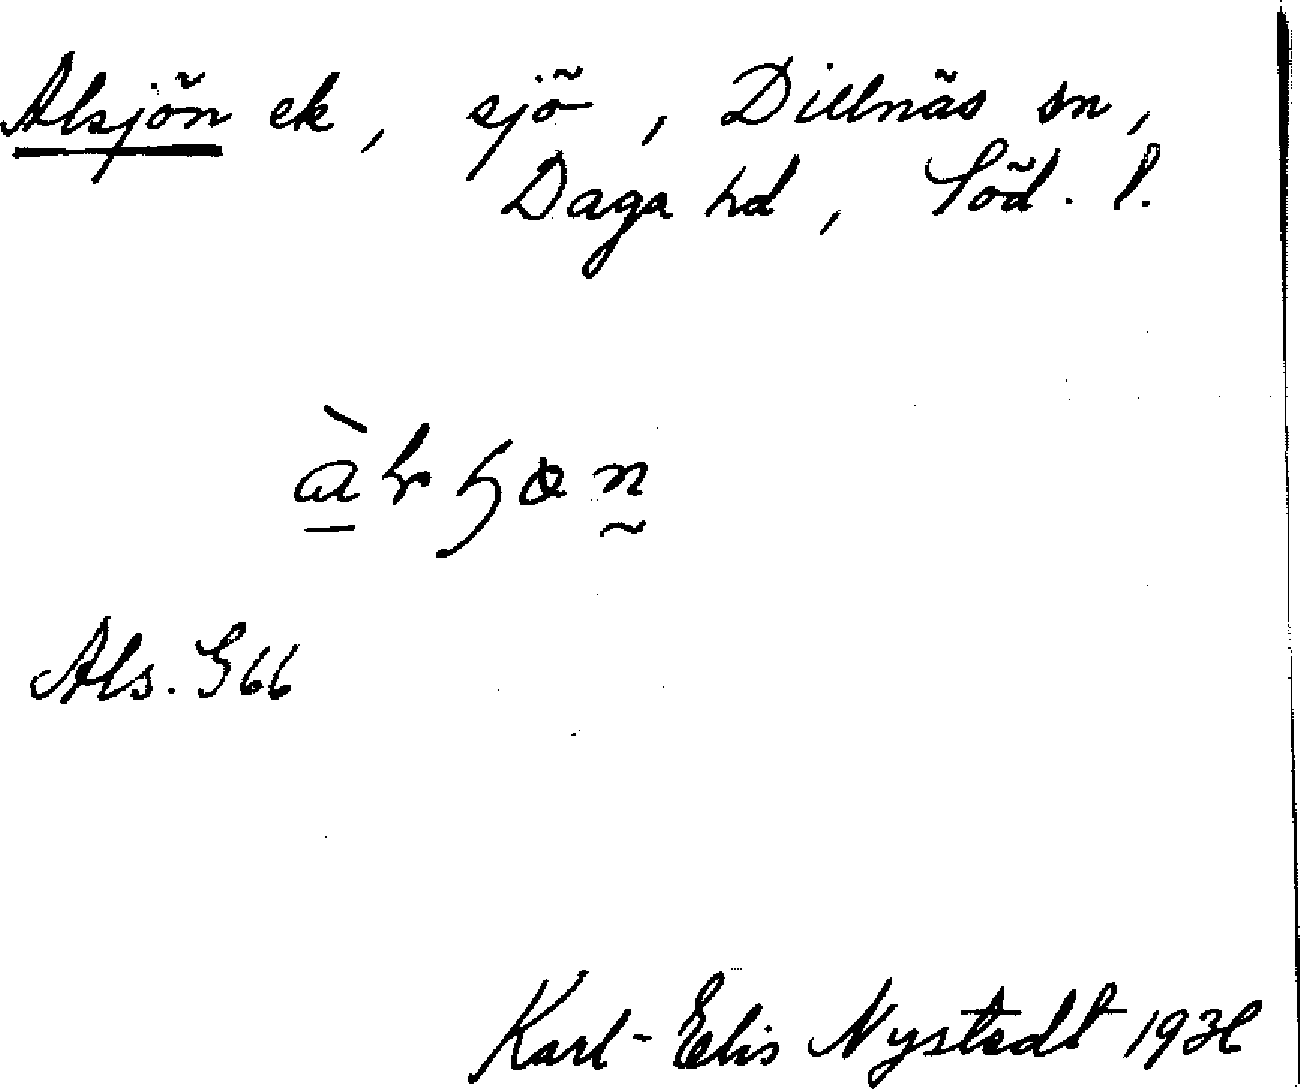 Alsjön ek, sjö, Dillnäs sn,
Daga hd, Söd. l.
Als. G66
Karl-Elis Nystedt